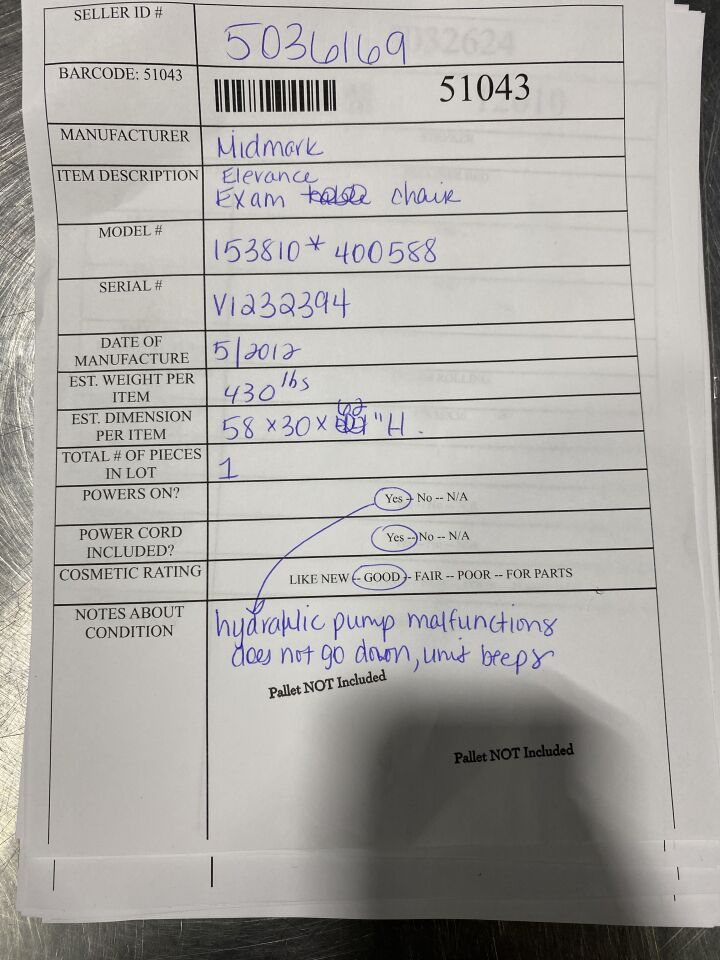 SELLER ID #
5036169
BARCODE: 51043
51043
MANUFACTURER
Midmark
ITEM DESCRIPTION
Elevance
Exam chair
MODEL #
153810* 400588
SERIAL #
V1232394
DATE OF
MANUFACTURE
5/2012
EST. WEIGHT PER
ITEM
430 lbs
EST. DIMENSION
PER ITEM
58 x 30 x 62 "H.
TOTAL # OF PIECES
IN LOT
1
POWERS ON?
Yes -- No -- N/A
POWER CORD
INCLUDED?
Yes -- No -- N/A
COSMETIC RATING
LIKE NEW -- GOOD -- FAIR -- POOR -- FOR PARTS
NOTES ABOUT
CONDITION
hydraulic pump malfunctions
does not go down, unit beeps
Pallet NOT Included
Pallet NOT Included